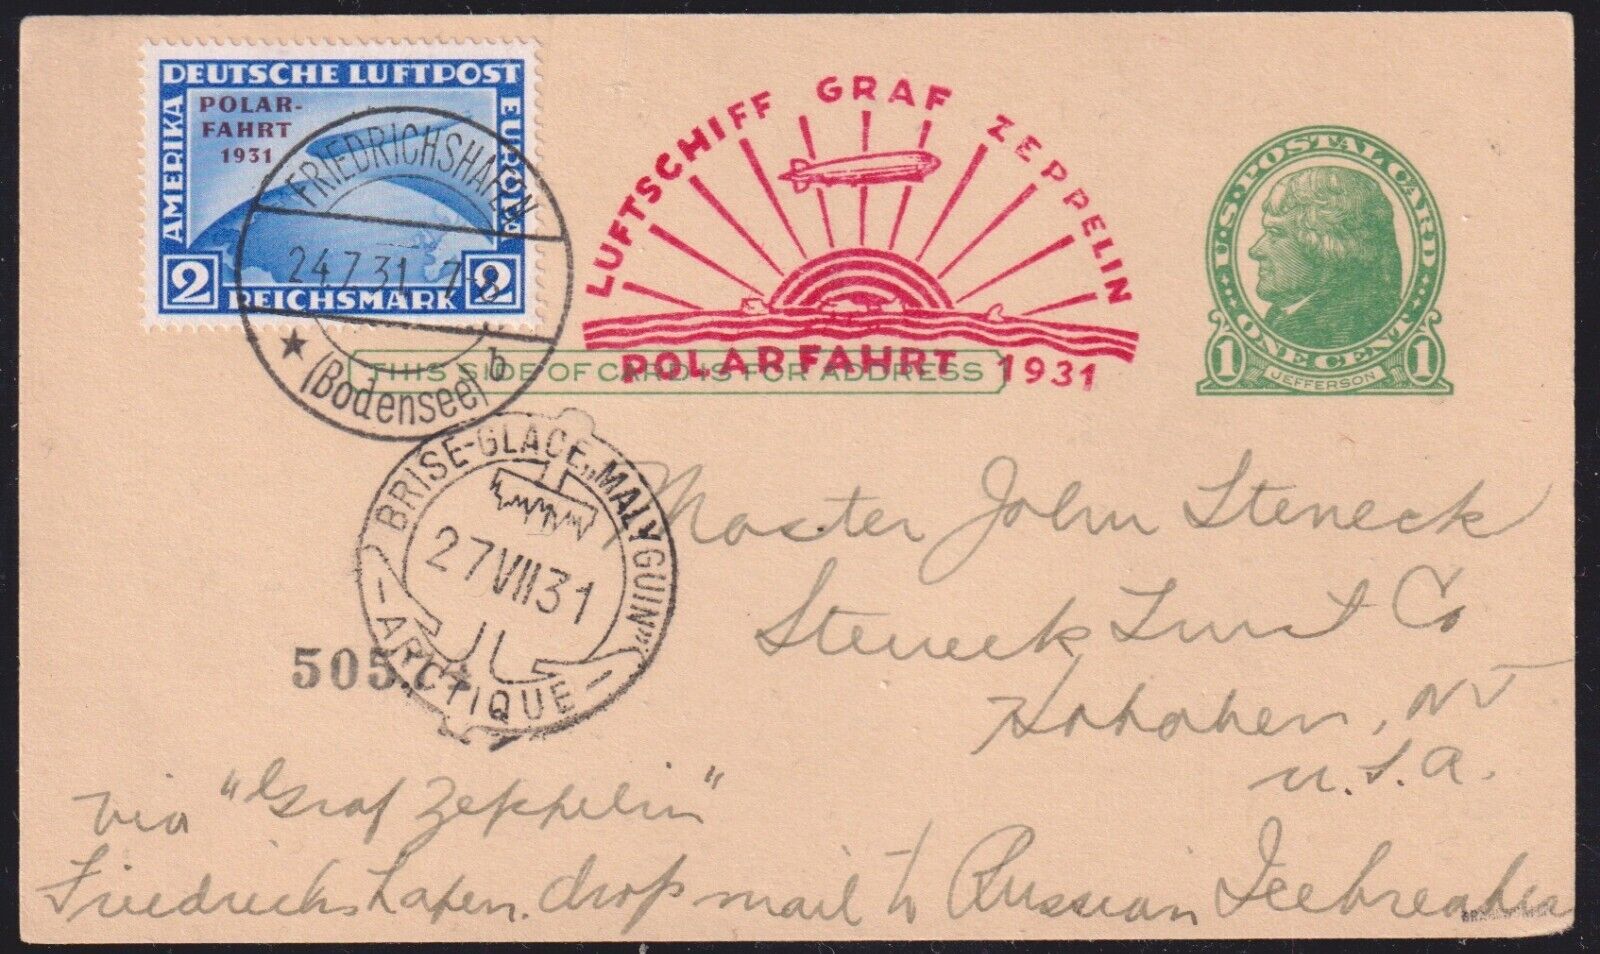 DEUTSCHE LUFTPOST
AMERIKA
EUROPA
POLAR-
FAHRT
1931
2 REICHSMARK 2
FRIEDRICHSHAFEN
24.7.31. 7-8
★ (Bodensee) b
LUFTSCHIFF GRAF ZEPPELIN
POLARFAHRT 1931
THIS SIDE OF CARD IS FOR ADDRESS
U·S·POSTAL CARD
1 ONE CENT 1
JEFFERSON
BRISE-GLACE „MALYGUIN"
27 VII 31
— ARCTIQUE —
505
Master John Steneck
Steneck Trust Co
Hoboken, NJ
U.S.A.
via "Graf Zeppelin"
Friedrichshafen. drop mail to Russian Icebreaker